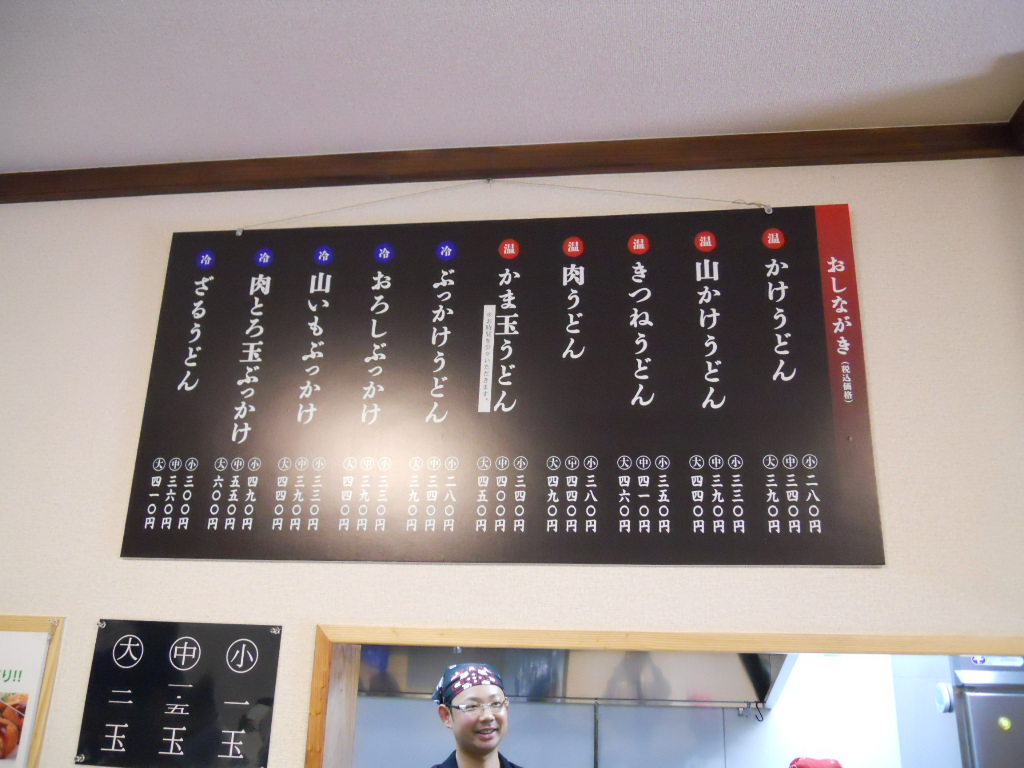 おしながき(税込価格)
温 かけうどん 小 二八〇円 中 三四〇円 大 三九〇円
温 山かけうどん 小 三三〇円 中 三九〇円 大 四四〇円
温 きつねうどん 小 三五〇円 中 四一〇円 大 四六〇円
温 肉うどん 小 三八〇円 中 四四〇円 大 四九〇円
温 かま玉うどん 小 三四〇円 中 四〇〇円 大 四五〇円
※お時間を少々いただきます。
冷 ぶっかけうどん 小 二八〇円 中 三四〇円 大 三九〇円
冷 おろしぶっかけ 小 三三〇円 中 三九〇円 大 四四〇円
冷 山いもぶっかけ 小 三三〇円 中 三九〇円 大 四四〇円
冷 肉とろ玉ぶっかけ 小 四九〇円 中 五五〇円 大 六〇〇円
冷 ざるうどん 小 三〇〇円 中 三六〇円 大 四一〇円
小 一玉
中 一・五玉
大 二玉
り!!